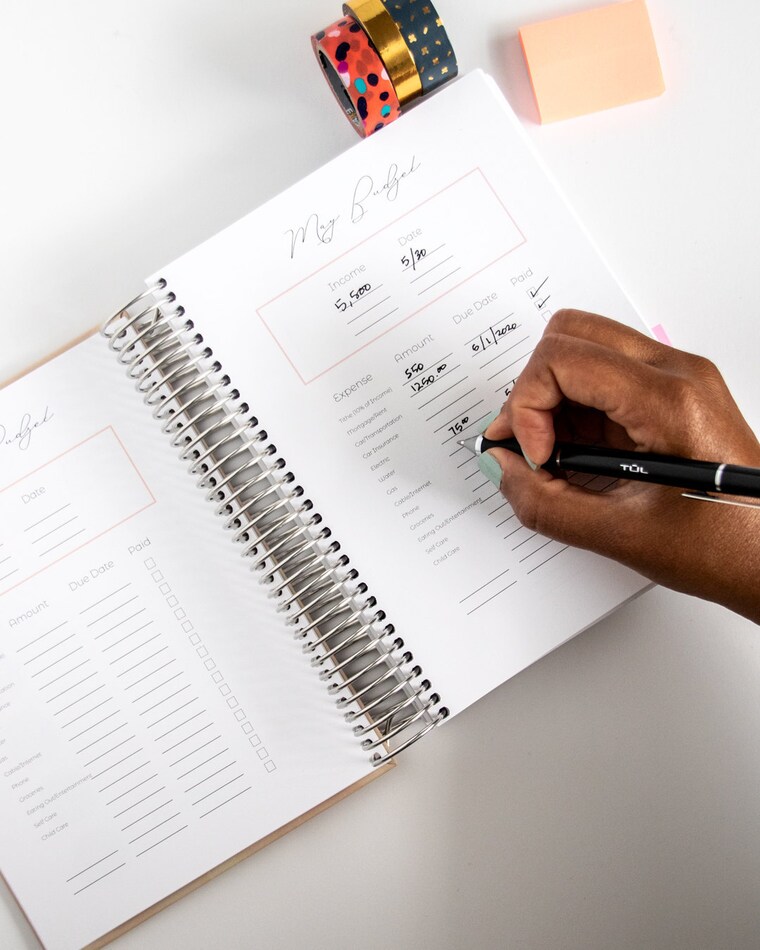 Budget
Date
Amount
Due Date
Paid
Cable/Internet
Phone
Groceries
Eating Out/Entertainment
Self Care
Child Care
May Budget
Income
Date
5,500
5/30
Expense
Amount
Due Date
Paid
Tithe (10% of Income)
550
Mortgage/Rent
1250.00
6/1/2020
Car/Transportation
Car Insurance
Electric
75.00
Water
Gas
Cable/Internet
Phone
Groceries
Eating Out/Entertainment
Self Care
Child Care
TUL